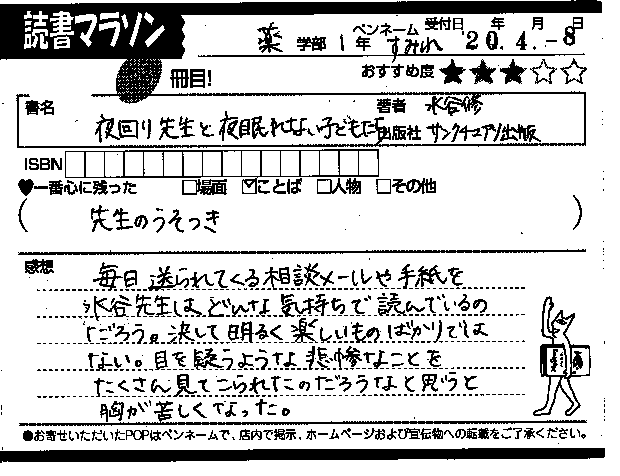 読書マラソン
薬 学部 1 年 ペンネーム すみれ 受付日 '20年 4月 -8日
冊目! おすすめ度 ★★★☆☆
書名 夜回り先生と夜眠れない子どもたち
著者 水谷修
出版社 サンクチュアリ出版
ISBN
♥一番心に残った □場面 ☑ことば □人物 □その他
( 先生のうそつき )
感想
毎日送られてくる相談メールや手紙を
水谷先生は、どんな気持ちで読んでいるの
だろう。決して明るく楽しいものばかりでは
ない。目を疑うような悲惨なことを
たくさん見てこられたのだろうなと思うと
胸が苦しくなった。
●お寄せいただいたPOPはペンネームで、店内で掲示、ホームページおよび宣伝物への転載をご了承ください。